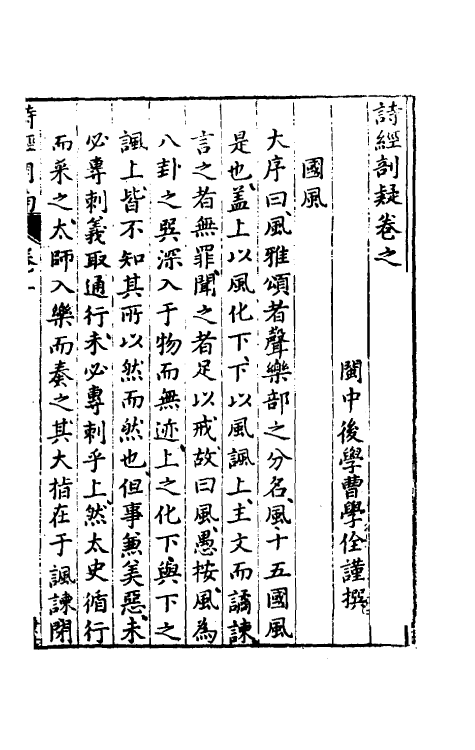 詩經剖疑卷之
閩中後學曹學佺謹撰
國風
大序曰風雅頌者聲樂部之分名風十五國風
是也蓋上以風化下下以風諷上主文而譎諫
言之者無罪聞之者足以戒故曰風愚按風為
八卦之巽深入于物而無迹上之化下與下之
諷上皆不知其所以然而然也但事兼美惡未
必專刺義取通行未必專刺乎上然太史循行
而采之太師入樂而奏之其大指在于諷諫閉
詩經周南 卷一